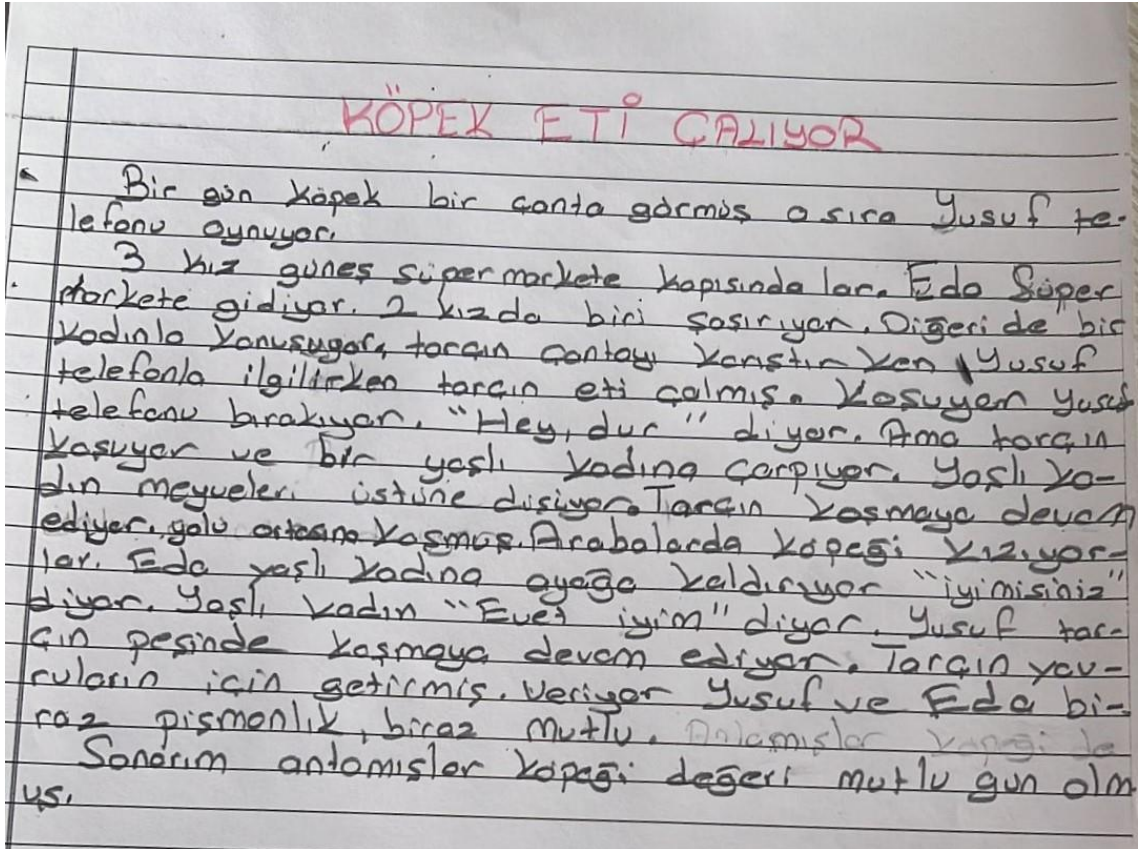 KÖPEK ETİ ÇALIYOR
Bir gün köpek bir çanta görmüş o sıra Yusuf te-
lefonu oynuyor.
3 kız güneş süpermarkete kapısında lar. Eda Süper
Markete gidiyor. 2 kızda biri şaşırıyor. Diğeri de bir
kadınla konuşuyor, tarçın çantayı karıştırken Yusuf
telefonla ilgilirken tarçın eti çalmış. Koşuyor Yusuf
telefonu bırakıyor. "Hey, dur" diyor. Ama tarçın
koşuyor ve bir yaşlı kadına çarpıyor. Yaşlı ka-
dın meyveleri üstüne düşüyor. Tarçın koşmaya devam
ediyor. yolu ortasına koşmuş. Arabalarda köpeği kızıyor-
lar. Eda yaşlı kadına ayağa kaldırıyor "iyimisiniz"
diyor. Yaşlı kadın "Evet iyim" diyor. Yusuf tar-
çın peşinde koşmaya devam ediyor. Tarçın yav-
ruların için getirmiş. veriyor Yusuf ve Eda bi-
raz pişmanlık, biraz mutlu.
Sanırım anlamışlar köpeği değeri mutlu gün olm
uş.